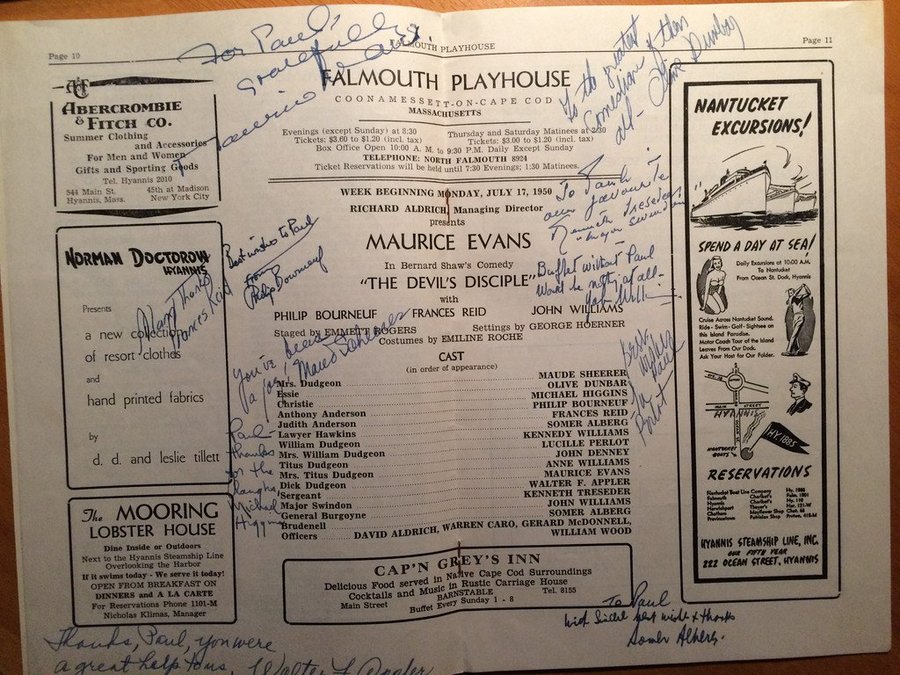 Page 10
FALMOUTH PLAYHOUSE
Page 11
For Paul,
gratefully
Maurice Evans
To the greatest
Comedienne of them
all - Olive Dunbar
A&F
ABERCROMBIE
& FITCH CO.
Summer Clothing
and Accessories
For Men and Women
Gifts and Sporting Goods
Tel. Hyannis 2010
544 Main St. 45th at Madison
Hyannis, Mass. New York City
NORMAN DOCTOROW
HYANNIS
Presents
a new collection
of resort clothes
and
hand printed fabrics
by
d. d. and leslie tillett
Many Thanks
Frances Reid
The MOORING
LOBSTER HOUSE
Dine Inside or Outdoors
Next to the Hyannis Steamship Line
Overlooking the Harbor
If it swims today - We serve it today!
OPEN FROM BREAKFAST ON
DINNERS and A LA CARTE
For Reservations Phone 1101-M
Nicholas Klimas, Manager
FALMOUTH PLAYHOUSE
COONAMESSETT-ON-CAPE COD
MASSACHUSETTS
Evenings (except Sunday) at 8:30 Thursday and Saturday Matinees at 2:30
Tickets: $3.60 to $1.20 (incl. tax) Tickets: $3.00 to $1.20 (incl. tax)
Box Office Open 10:00 A. M. to 9:30 P.M. Daily Except Sunday
TELEPHONE: NORTH FALMOUTH 8924
Ticket Reservations will be held until 7:30 Evenings; 1:30 Matinees.
WEEK BEGINNING MONDAY, JULY 17, 1950
RICHARD ALDRICH, Managing Director
presents
MAURICE EVANS
In Bernard Shaw's Comedy
"THE DEVIL'S DISCIPLE"
with
PHILIP BOURNEUF FRANCES REID JOHN WILLIAMS
Staged by EMMETT ROGERS Settings by GEORGE HOERNER
Costumes by EMILINE ROCHE
Best wishes to Paul
from
Philip Bourneuf
To Paul -
our favourite
Kenneth Treseder
"Major Swindon"
Buffet without Paul
would be nothing at all -
John Williams
You've been
a joy! Maude Scheerer
Best
wishes
Paul
Perlot
Paul -
thanks
for the
laughs,
Michael
Higgins
CAST
(in order of appearance)
Mrs. Dudgeon MAUDE SHEERER
Essie OLIVE DUNBAR
Christie MICHAEL HIGGINS
Anthony Anderson PHILIP BOURNEUF
Judith Anderson FRANCES REID
Lawyer Hawkins SOMER ALBERG
William Dudgeon KENNEDY WILLIAMS
Mrs. William Dudgeon LUCILLE PERLOT
Titus Dudgeon JOHN DENNEY
Mrs. Titus Dudgeon ANNE WILLIAMS
Dick Dudgeon MAURICE EVANS
Sergeant WALTER F. APPLER
Major Swindon KENNETH TRESEDER
General Burgoyne JOHN WILLIAMS
Brudenell SOMER ALBERG
Officers DAVID ALDRICH, WARREN CARO, GERARD McDONNELL,
WILLIAM WOOD
CAP'N GREY'S INN
Delicious Food served in Native Cape Cod Surroundings
Cocktails and Music in Rustic Carriage House
Main Street BARNSTABLE Tel. 8155
Buffet Every Sunday 1 - 8
NANTUCKET
EXCURSIONS!
SPEND A DAY AT SEA!
Daily Excursions at 10:00 A.M.
To Nantucket
From Ocean St. Dock, Hyannis
Cruise Across Nantucket Sound.
Ride - Swim - Golf - Sightsee on
this Island Paradise.
Motor Coach Tour of the Island
Leaves From Our Dock.
Ask Your Host for Our Folder.
MAIN STREET
HYANNIS
NANTUCKET
BOATS
HY.1885
RESERVATIONS
Nantucket Boat Line Company
Falmouth
Hyannis
Harwichport
Chatham
Provincetown
HYANNIS STEAMSHIP LINE, INC.
OUR FIFTH YEAR
222 OCEAN STREET, HYANNIS
To Paul
with best wishes & thanks
Somer Alberg.
Thanks, Paul, you were
a great help to us, Walter F. Appler